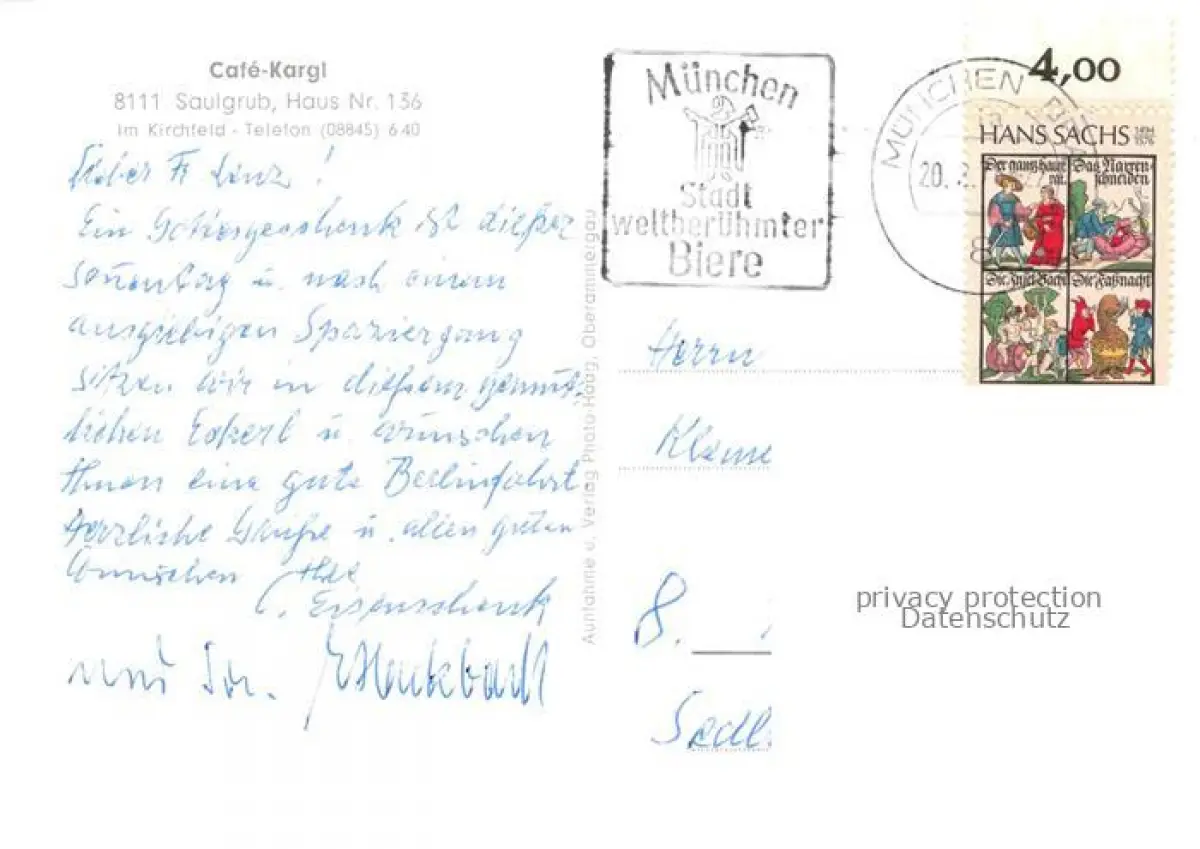 Café-Kargl
8111 Saulgrub, Haus Nr. 136
Im Kirchfeld - Telefon (08845) 640
Lieber
Ein Gottesgeschenk ist dießer
Sonnentag u. nach einem
ausgiebigen Spaziergang
sitzen wir in dießem gemüt-
lichen Eckerl u. wünschen
Ihnen eine gute Berlinfahrt
Herzliche Grüße u. allen guten
Wünschen Ihre
C. Eisenschenk
Aufnahme u. Verlag Photo-Haug, Oberammergau
München
Stadt
weltberühmter
Biere
MÜNCHEN
20.
8
4,00
HANS SACHS 1494 1576
Der gantz haus rat.
Das Narren-schneiden
Die Faßnacht
Herrn
8.
Sedl
privacy protection
Datenschutz